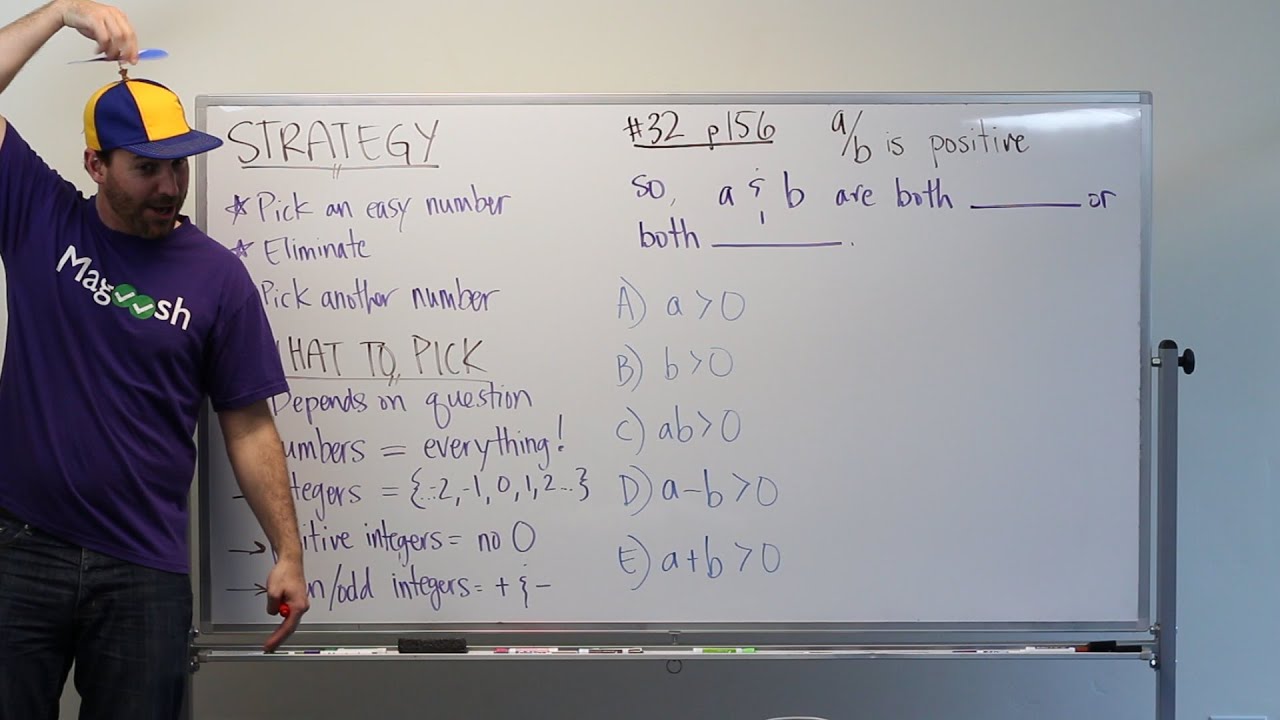 Magoosh
STRATEGY
Pick an easy number
Eliminate
Pick another number
HAT TO PICK
Depends on question
umbers = everything!
tegers = {...-2, -1, 0, 1, 2...}
itive integers = no 0
n/odd integers = + & -
#32 p156
a/b is positive
so, a & b are both ______ or
both ______.
A) a > 0
B) b > 0
C) ab > 0
D) a - b > 0
E) a + b > 0